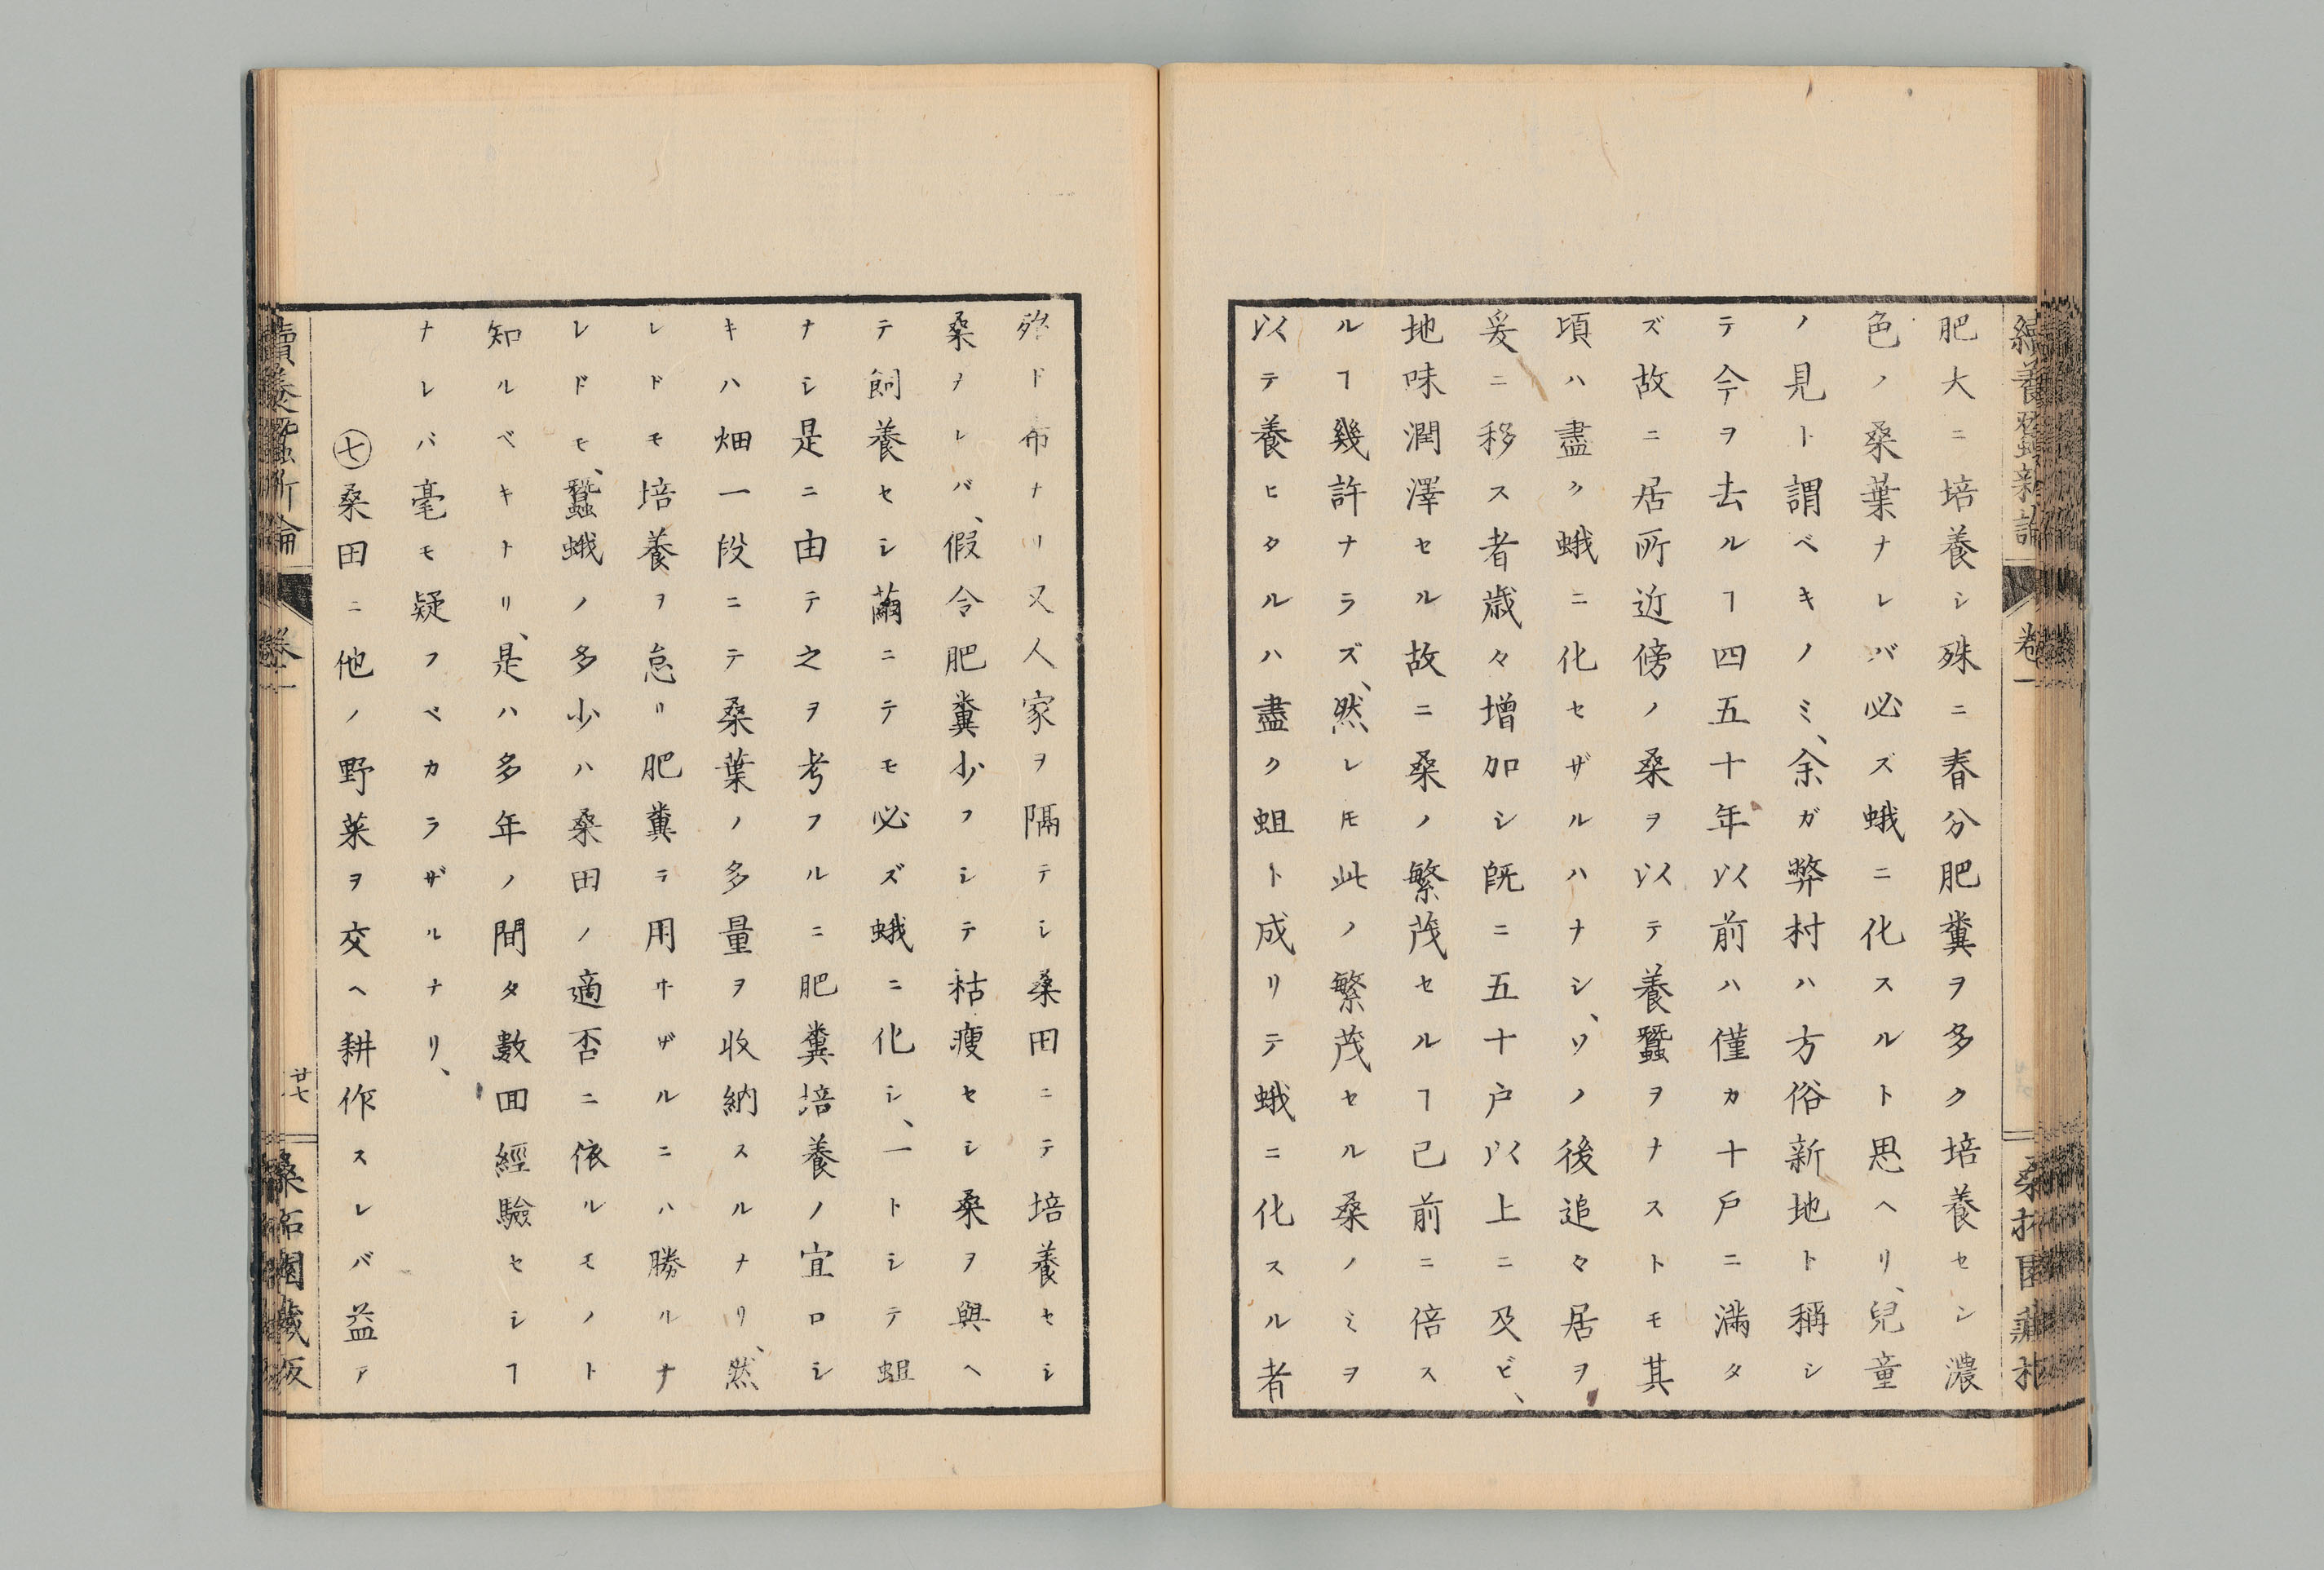 肥大ニ培養シ殊ニ春分肥糞ヲ多ク培養セシ濃
色ノ桑葉ナレバ必ズ蛾ニ化スルト思ヘリ、兒童
ノ見ト謂ベキノミ、余ガ弊村ハ方俗新地ト稱シ
テ今ヲ去ルヿ四五十年以前ハ僅カ十戸ニ滿タ
ズ故ニ居所近傍ノ桑ヲ以テ養蠶ヲナストモ其
頃ハ盡ク蛾ニ化セザルハナシ、ソノ後追々居ヲ
爰ニ移ス者歳々增加シ既ニ五十戸以上ニ及ビ、
地味潤澤セル故ニ桑ノ繁茂セルヿ已前ニ倍ス
ルヿ幾許ナラズ、然レ𪜈此ノ繁茂セル桑ノミヲ
以テ養ヒタルハ盡ク蛆ト成リテ蛾ニ化スル者
殆ド布ナリ又人家ヲ隔テシ桑田ニテ培養セシ
桑ヲレバ、假令肥糞少フシテ枯瘦セシ桑ヲ與ヘ
テ飼養セシ繭ニテモ必ズ蛾ニ化シ、一トシテ蛆
ナシ是ニ由テ之ヲ考フルニ肥糞培養ノ宜ロシ
キハ畑一段ニテ桑葉ノ多量ヲ收納スルナリ、然
レドモ培養ヲ怠リ肥糞ラ用ヰザルニハ勝ルナ
レドモ、蠶蛾ノ多少ハ桑田ノ適否ニ依ルモノト
知ルベキトリ、是ハ多年ノ間タ數囬經驗セシヿ
ナレバ毫モ疑フベカラザルナリ、
㊆桑田ニ他ノ野菜ヲ交ヘ耕作スレバ益ア
續養蠶新論
卷一
廿七
桑柘園藏板